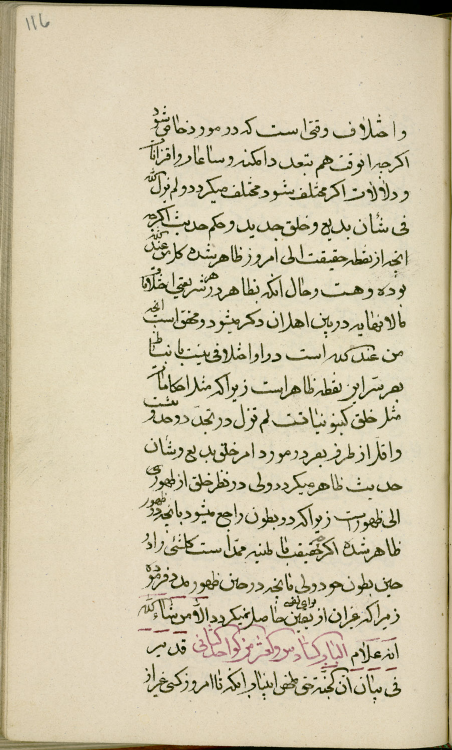 116
واختلاف وقتی است که در مورد خافی شود
اکرچه انوقت هم تبعدد امکنه وساعات واقترانات
ودلالات اکر مختلف شود مختلف میکردد ولم یزل الله
فی شان بدیع وخلق جدید وحکم حدیث اکرچه
انچه از نقطه حقیقت الی امروز ظاهر شده کل من عند الله
بوده وهست وحال انکه بظاهر در هر شریعتی اختلافات
مالانهایه در بین اهل ان ذکر میشود ومحقق است انچه
من عند الله است در او اختلافی نیست
بعد سر این نقطه ظاهر است زیرا که مثل احکامات
مثل خلق کینونیات است لم یزل در تجدد وحدوث
واقل از طرف بصر در مورد امر خلق بدیع وشان
حدیث ظاهر میکردد ولی در نظر خلق از ظهوری
الی ظهور است زیرا که در بطون راجع میشود بانچه در ظهور
ظاهر شده اکرچه حقیقت باطنیه ممد است کلشئی را در
حین بطون خود ولی بانچه در حین ظهور مدد فرموده
زیرا که عرفان از برای نفسی حاصل نمیکردد الا من شاء الله
انه علام الباب السادس والعشر من الواحد الثانی قدیر
فی بیان ان الجنة حق ملخص این باب انکه تا امروز کسی غیر از